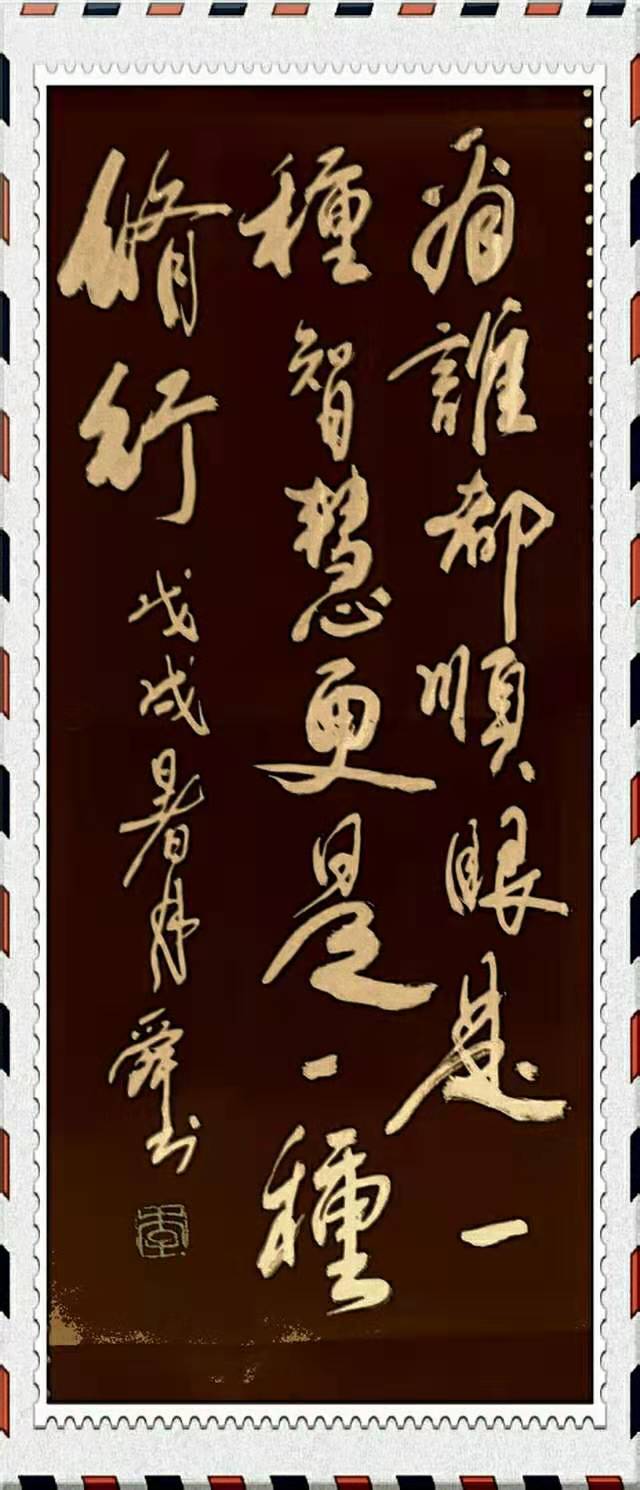 看誰都順眼是一
種智慧更是一種
脩行 戊戌暑月舜书